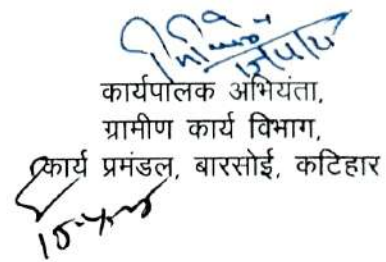 कार्यपालक अभियंता,
ग्रामीण कार्य विभाग,
कार्य प्रमंडल, बारसोई, कटिहार